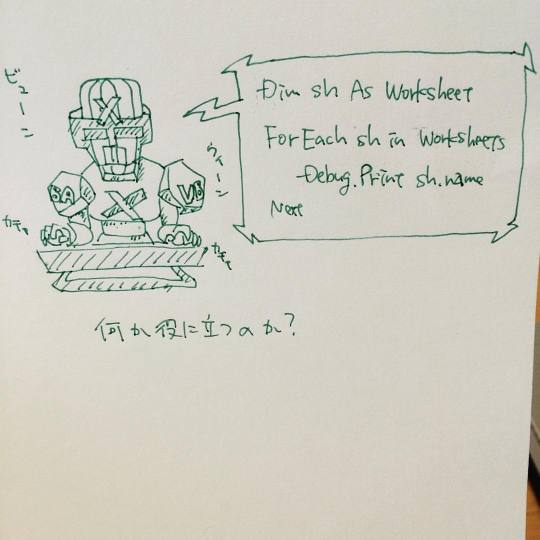 ビューーン
X
X
BA
VB
ウィーン
カチャ
カチャ
Dim sh As Worksheet
For Each sh in Worksheets
Debug.Print sh.name
Next
何か役に立つのか?